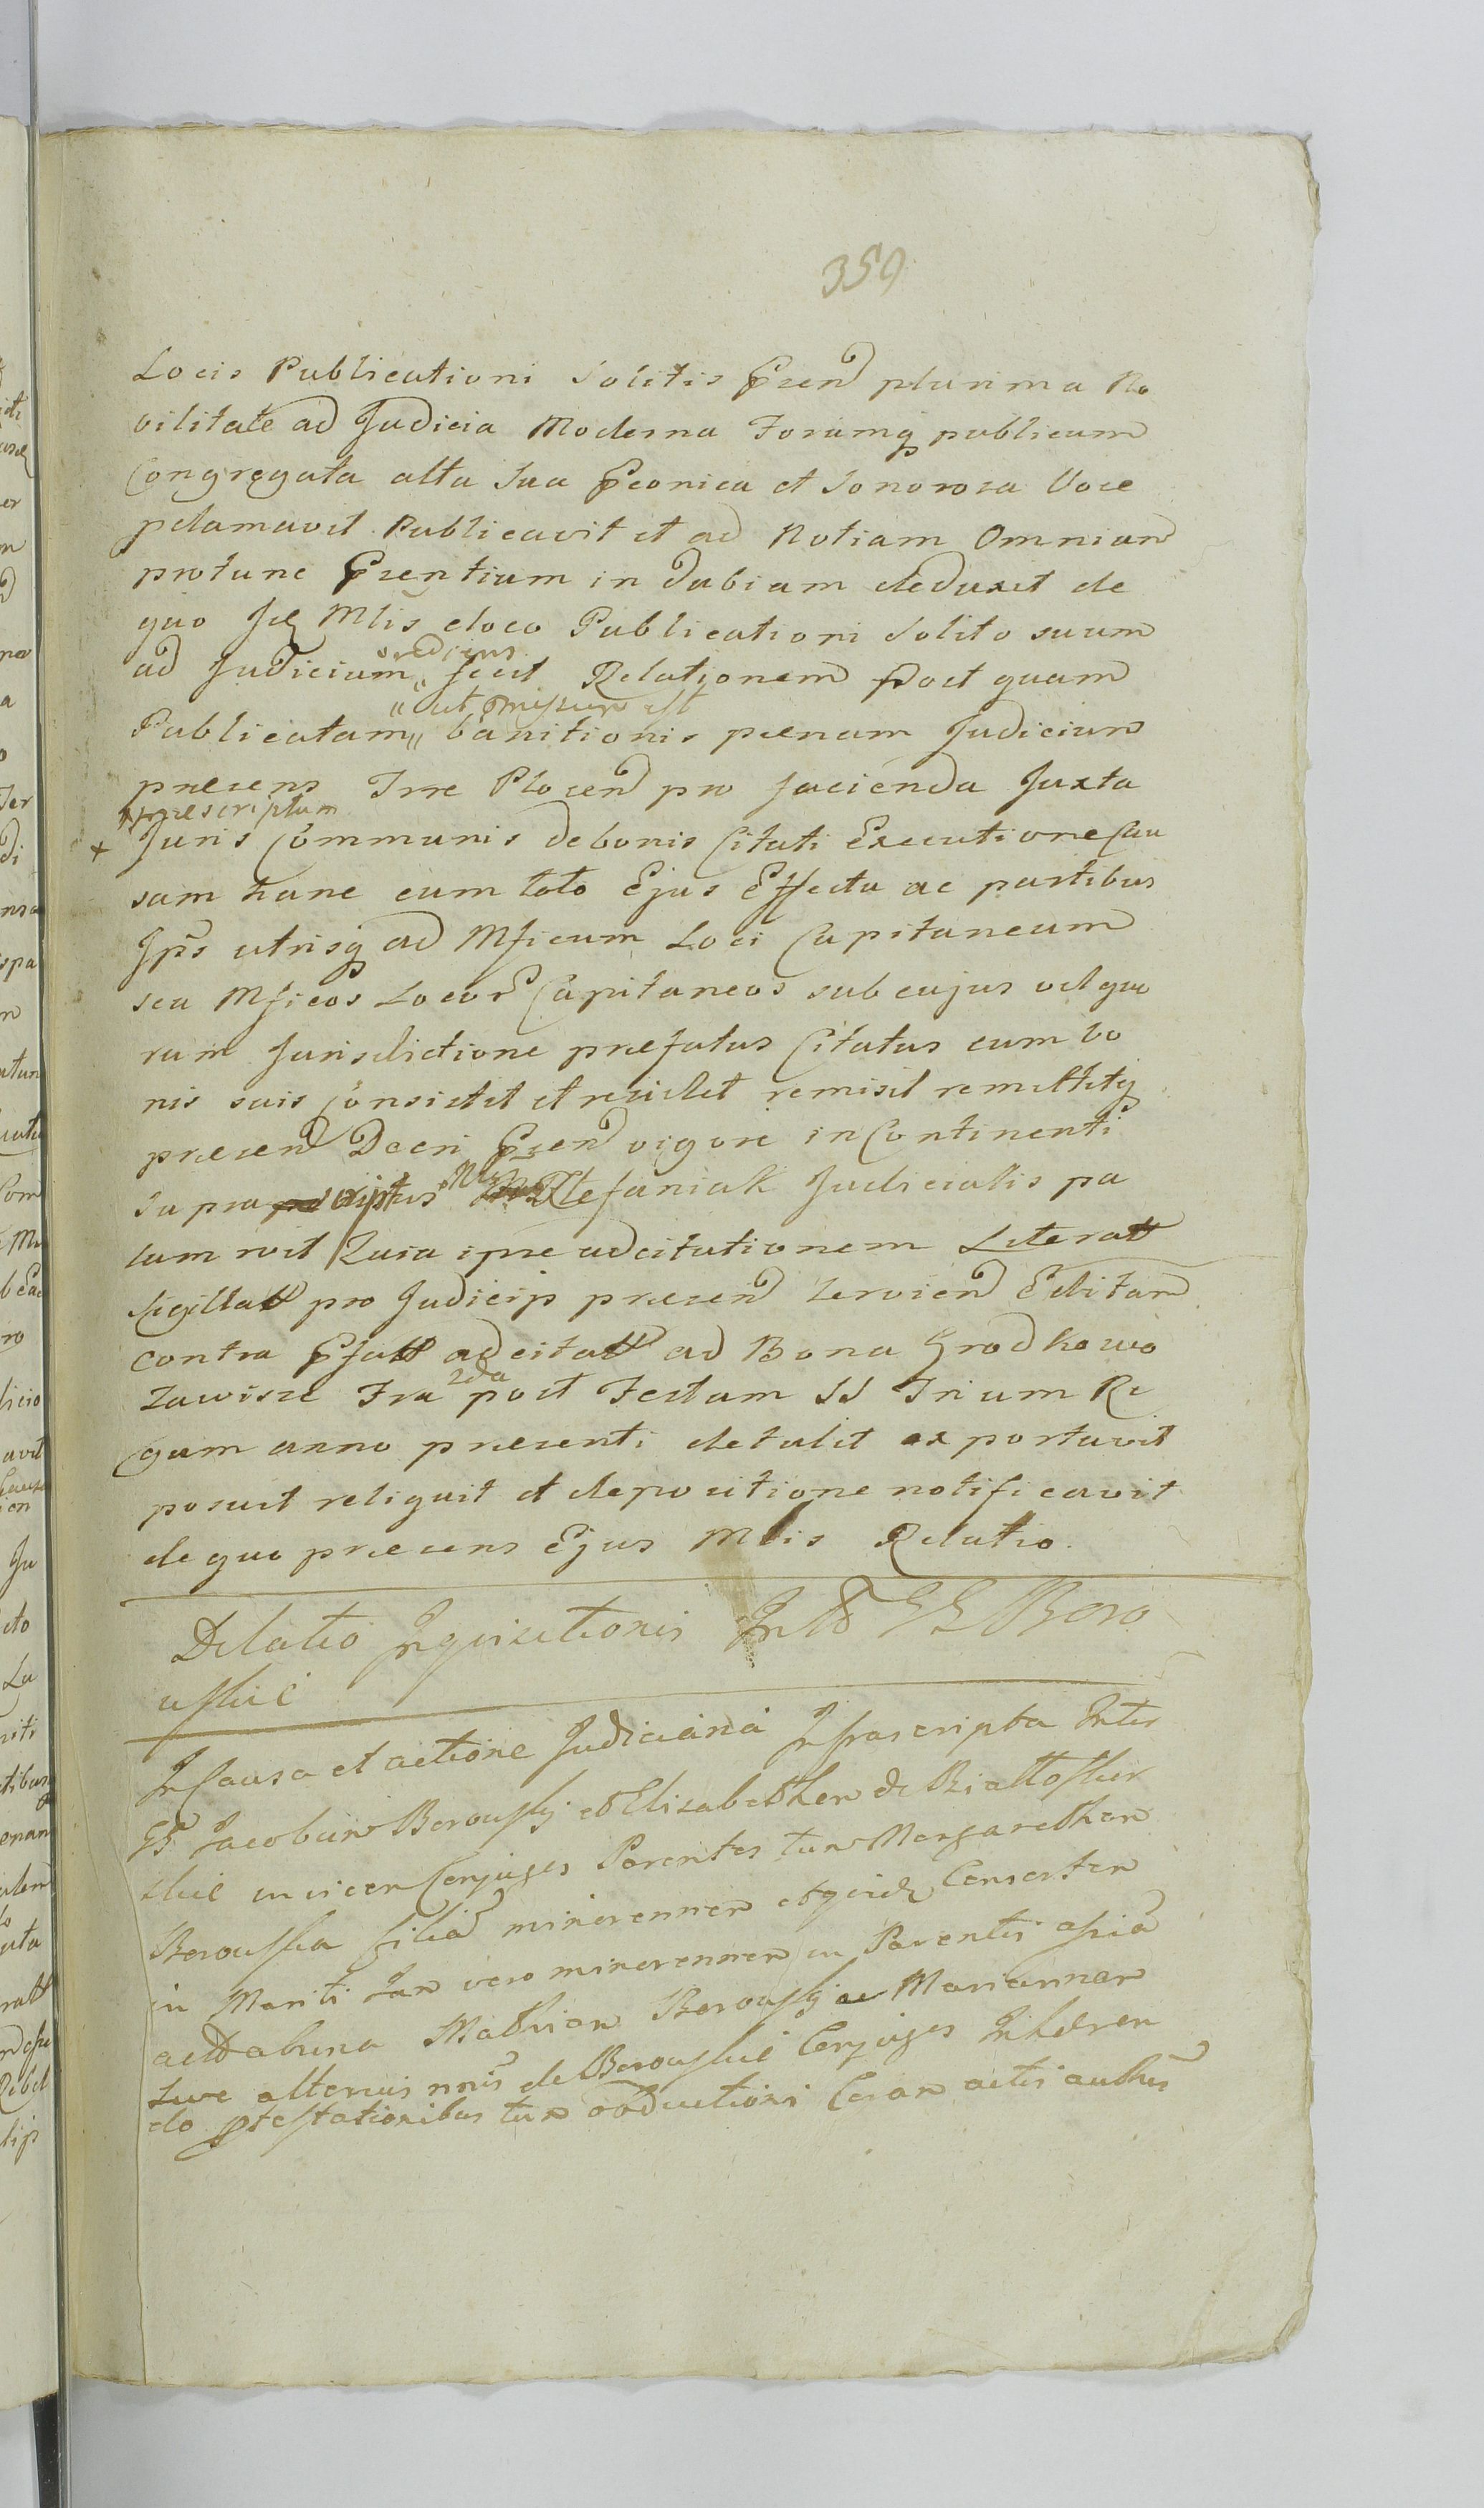 359
Locis Publicationi Solitis Prend plurima No
bilitate ad Judicia Moderna Forumq publicum
Congregata alta sua Pconica et Sonorosa Voce
pclamavit Publicavit et ad Notiam Omnium
protunc Prentium in dubiam deduxit de
quo Jd Mlis eloco Publicationi Solito suum
ad Judicium fecit Relationem Post quam
" ut pmissum est
Publicatam " banitionis paenam Judicium
praesens Trre Plocend pro facienda Juxta
+ praescriptum
Juris Communis de bonis Citati Executione Cau
sam hanc cum toto Ejus Effectu ac partibus
Jps utrisq ad Mficum Loci Capitaneum
seu Mficos Locor Capitaneos sub cujus vel quo
rum Jurisdictione praefatus Citatus cum bo
nis suis Consistit et residet remisit remittitq
praesend Decri Prend vigore in Continenti
supra scriptus Stefaniak Judicialis pa
lam roit Quia ipse adcitationem Literatt
sigillatt pro Judicijs praesend Serviend Editam
contra Pfatt adcitatt ad Bona Grodkowo
2da
Zawisze Fra post Festum SS Trium Re
gum anno praesenti detulit exportavit
posuit reliquit et depositione notificavit
de quo praesens Ejus Mlis Relatio.
Delatio Inquisitionis Int GG Boro
uskie
In Causa et actione Judiciaria Infrascripta Inter
GG Jacobum Borouskj et Elisabetham de Bialtoskie
skie invicem Conjuges Parentes tum Margaretham
Borouska filia minorennem Consortem
in Mariti Jan vero minorennem in Parentis assia
actoralium Mathiam Borouskj ac Mariannam
Suae alterius nnis de Borouskie Conjuges Inhaeren
do ptestationibus tum obductioni Coram actis authen